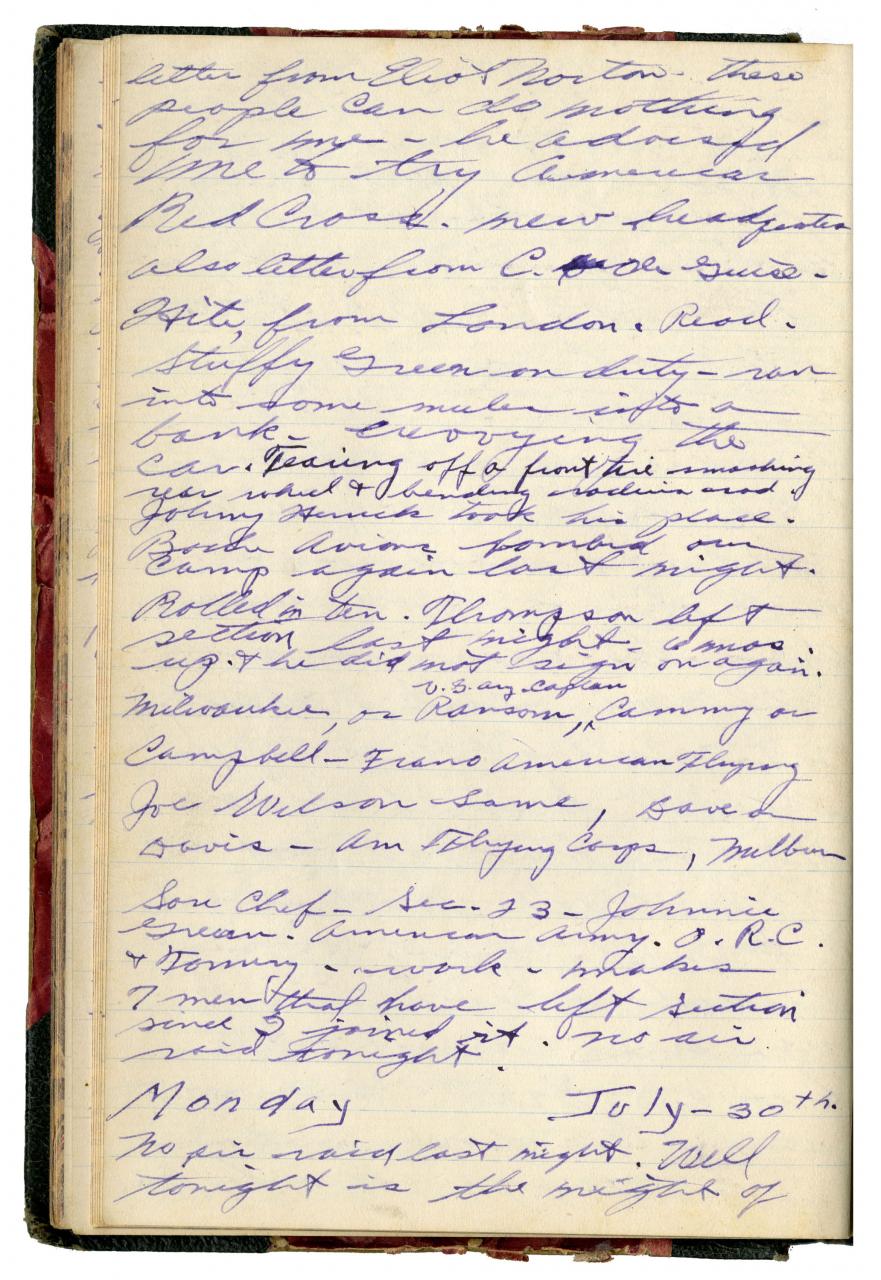 letter from Eliot Norton - these
people can do nothing
for me - he advised
me to try American
Red Cross. new headqrters
also letter from C. de Guise -
Hite, from London. Read.
Stuffy Green on duty - ran
into some mules into a
bank - the
car. Tearing off a front tire smashing
rear wheel & bending radius rod.
Johny took his place.
Boche Avions bombed our
camp again last night.
Rolled in ten. Thompson left
section last night - 6 mos.
up. & he did not sign on again.
U.S. avy. captain
Milwaukee, or Ransom, Cammy or
Campbell - Franco American Flying
Joe Wilson same, Dave or
Davis - Am Flying Corps, Milburn
Sou Chef - Sec. 23 - Johnnie
Green. American Army. O.R.C.
& - work - makes
7 men that have left section
since I joined it. no air
raid tonight.
Monday July - 30th.
No air raid last night. Well
tonight is the night of